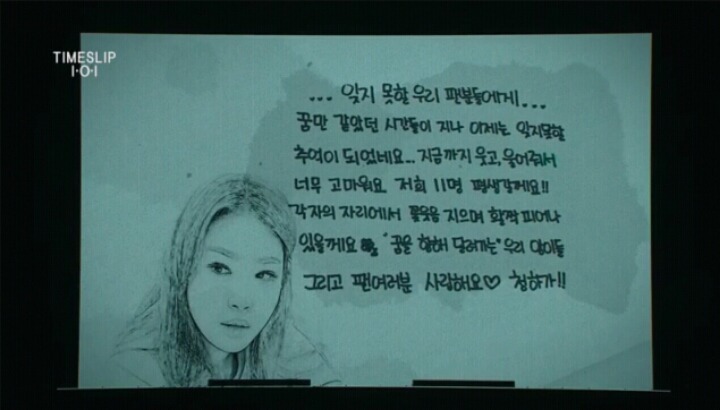 TIMESLIP
I·O·I
... 잊지 못할 우리 팬분들에게...
꿈만 같았던 시간들이 지나 이제는 잊지못할
추억이 되었네요... 지금까지 웃고, 울어줘서
너무 고마워요 저희 11명 평생갈께요!!
각자의 자리에서 꽃웃음 지으며 활짝 피어나
있을께요 "꿈을 향해 달려가는" 우리 맴이들
그리고 팬여러분 사랑해요♡ 청하가!!